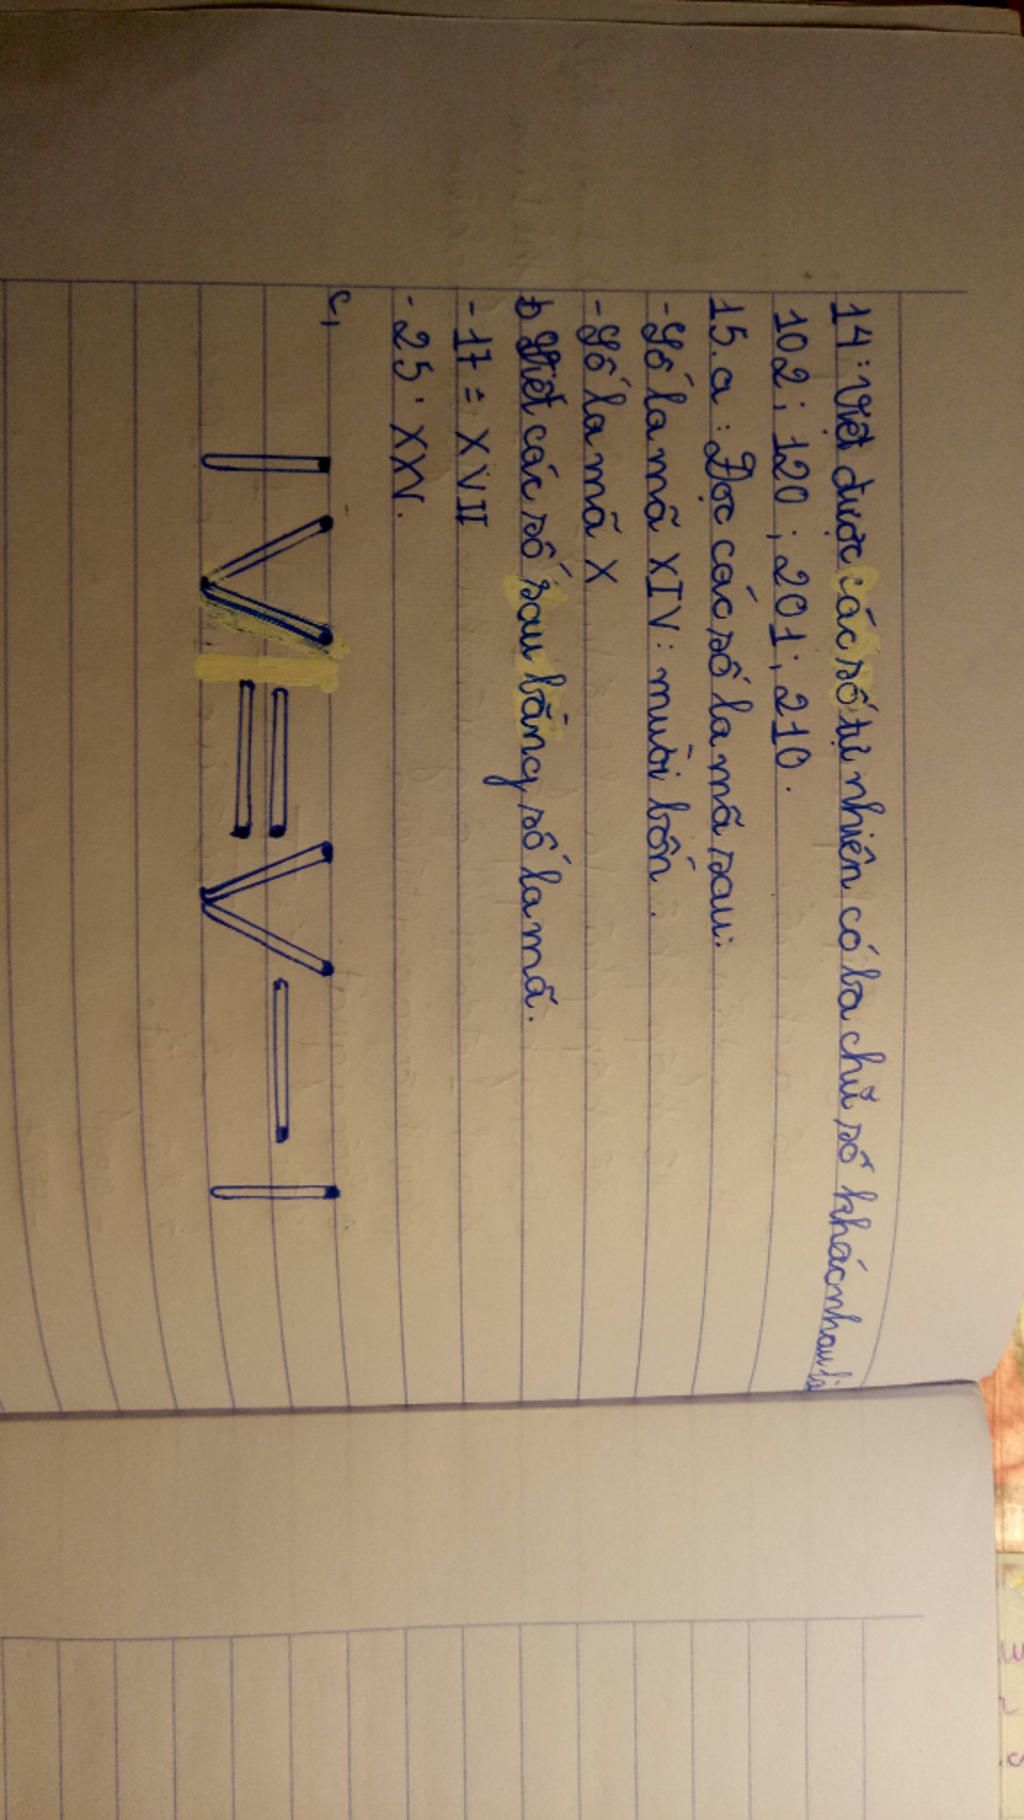 14: Viết được các số tự nhiên có ba chữ số khác nhau là
102; 120; 201; 210.
15. a: Đọc các số la mã sau:
- Số la mã XIV: mười bốn.
- Số la mã X
b Viết các số sau bằng số la mã.
- 17 = XVII
- 25: XXV.
c,
IV = V - I